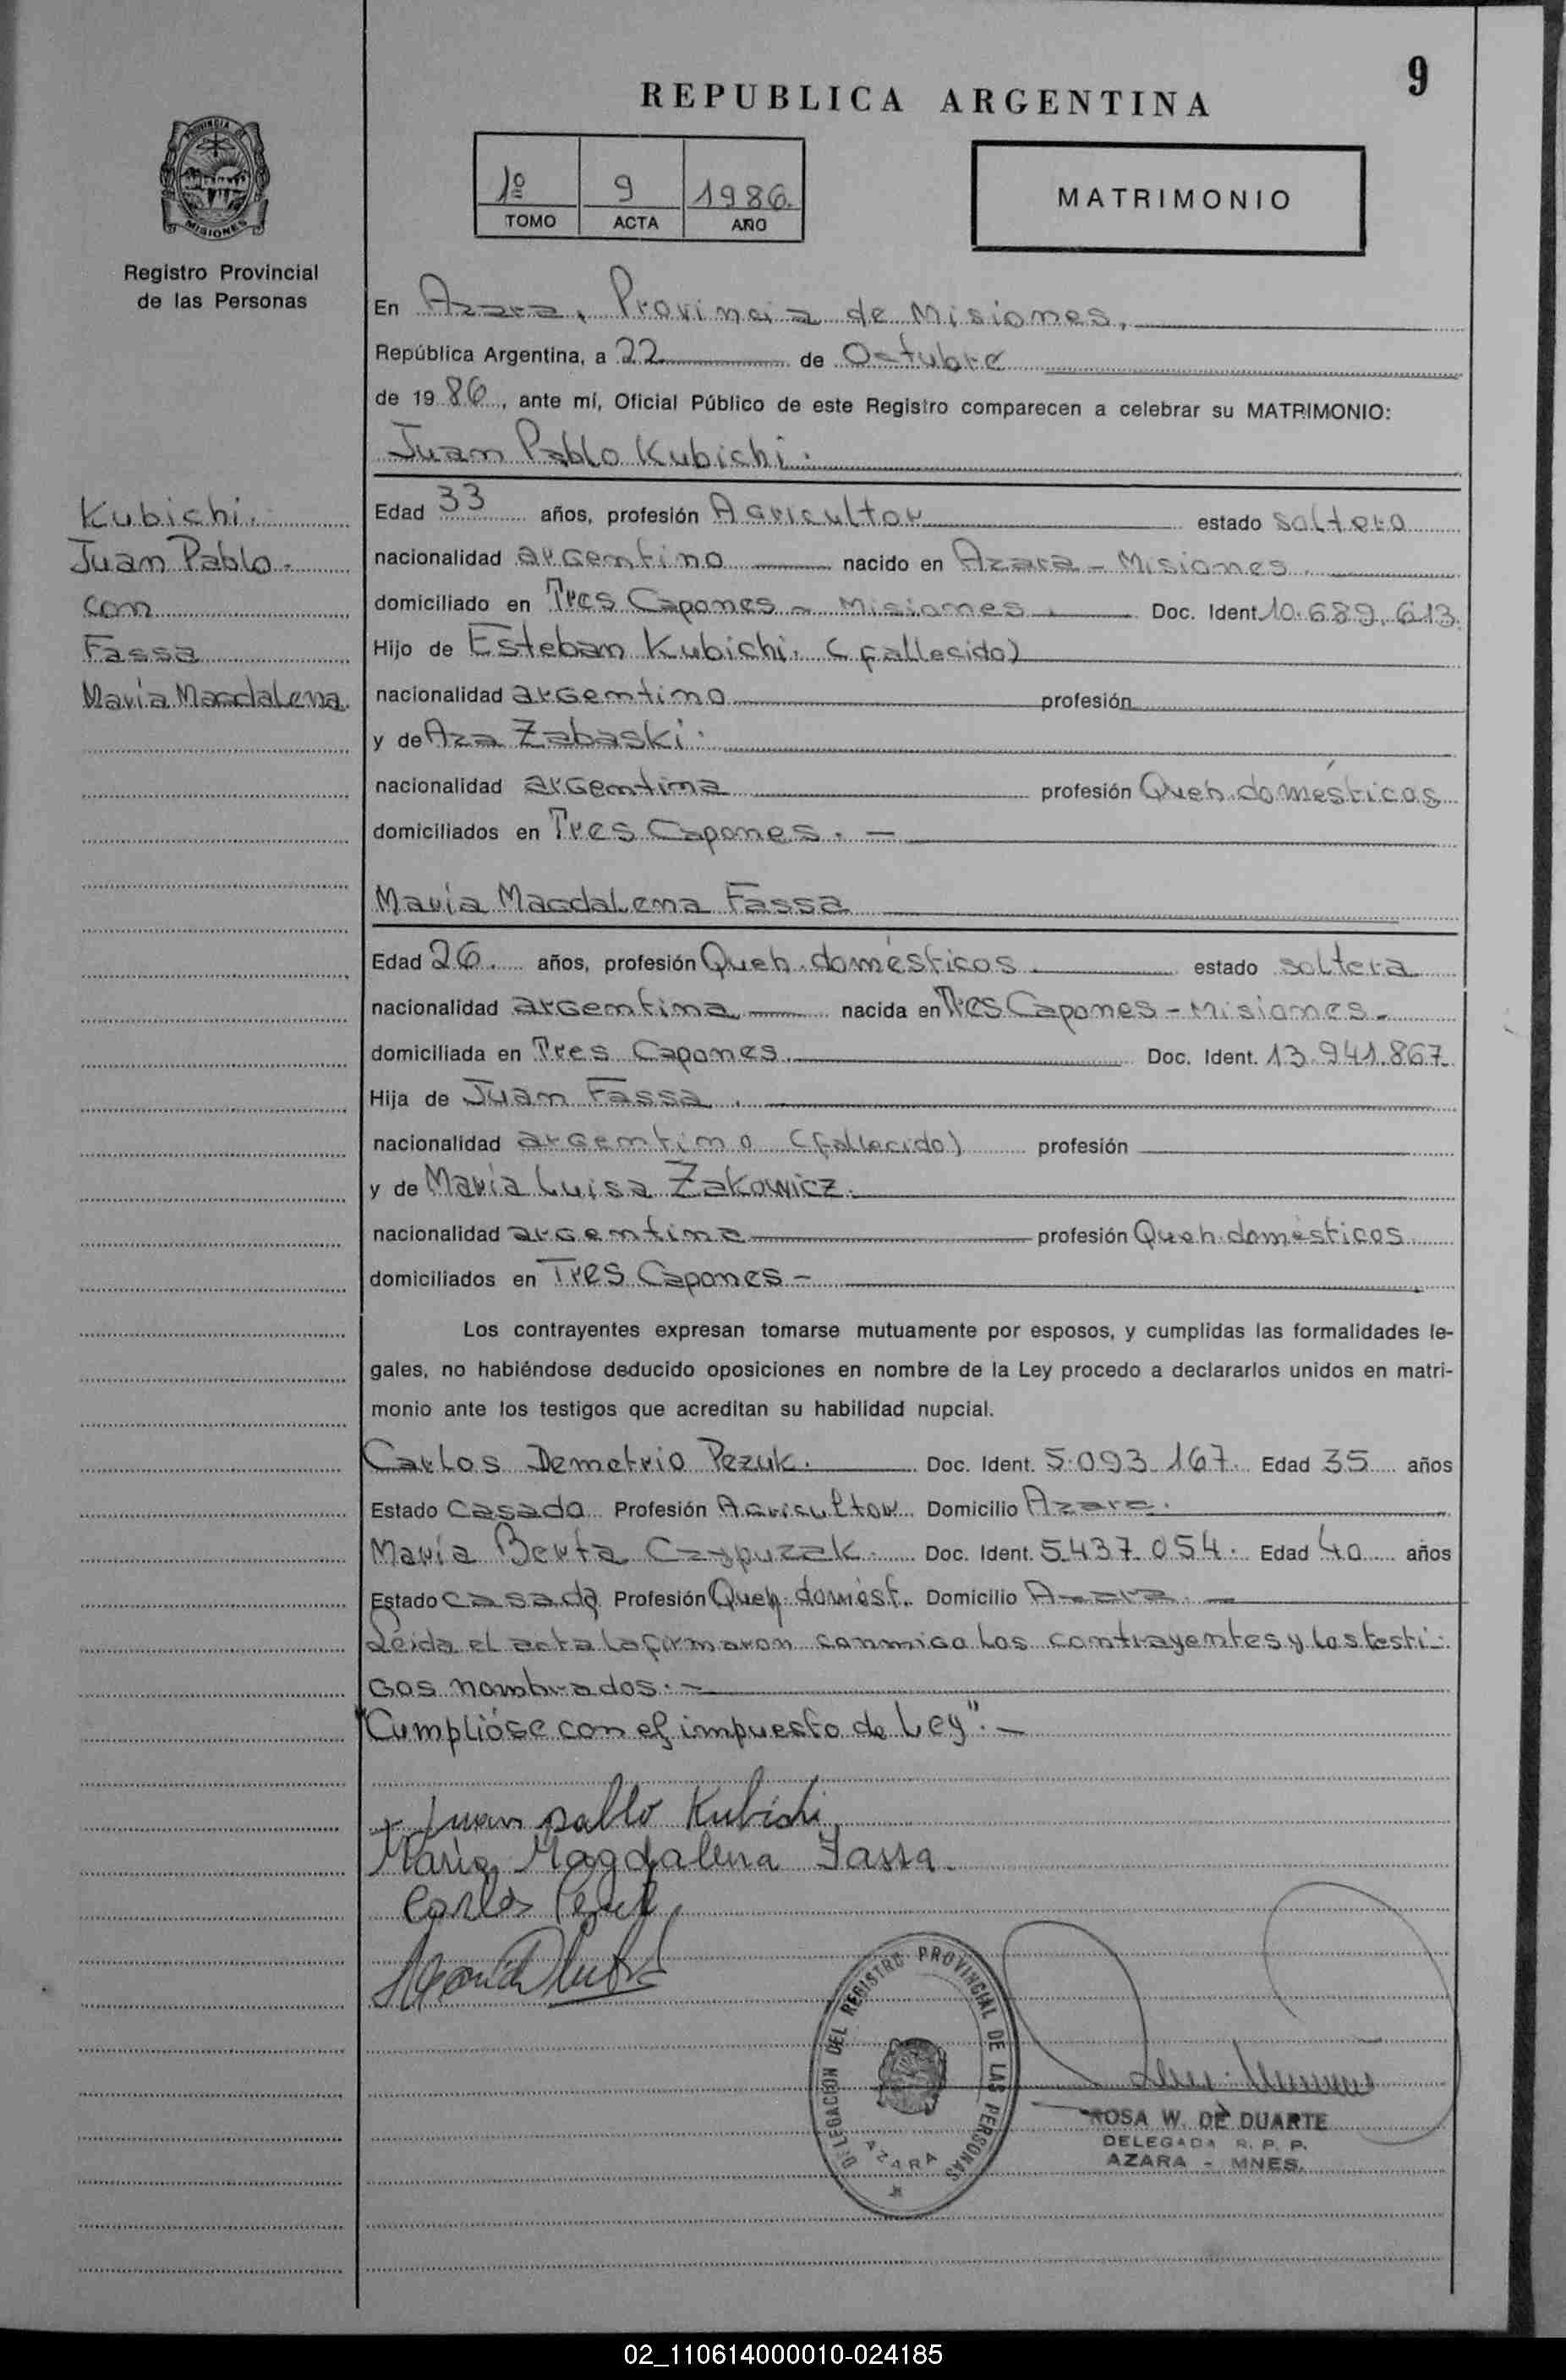 9
REPUBLICA ARGENTINA
1º 9 1986.
TOMO ACTA AÑO
MATRIMONIO
PROVINCIA DE
MISIONES
Registro Provincial
de las Personas
Kubichi.
Juan Pablo.
con
Fassa
María Magdalena.
En Azara, Provincia de Misiones,
República Argentina, a 22 de Octubre
de 1986, ante mí, Oficial Público de este Registro comparecen a celebrar su MATRIMONIO:
Juan Pablo Kubichi.
Edad 33 años, profesión Agricultor estado soltero
nacionalidad argentino nacido en Azara - Misiones.
domiciliado en Tres Capones - Misiones. Doc. Ident. 10.689.613.
Hijo de Esteban Kubichi. (fallecido)
nacionalidad argentino profesión
y de Aza Zabaski.
nacionalidad argentina profesión Queh. domésticos
domiciliados en Tres Capones. -
María Magdalena Fassa
Edad 26. años, profesión Queh. domésticos. estado soltera
nacionalidad argentina nacida en Tres Capones - Misiones.
domiciliada en Tres Capones. Doc. Ident. 13.941.867
Hija de Juan Fassa.
nacionalidad argentino (fallecido) profesión
y de María Luisa Zakowicz.
nacionalidad argentina profesión Queh. domésticos
domiciliados en Tres Capones -
Los contrayentes expresan tomarse mutuamente por esposos, y cumplidas las formalidades le-
gales, no habiéndose deducido oposiciones en nombre de la Ley procedo a declararlos unidos en matri-
monio ante los testigos que acreditan su habilidad nupcial.
Carlos Demetrio Pezuk. Doc. Ident. 5.093.167. Edad 35 años
Estado casado Profesión Agricultor Domicilio Azara.
María Berta Czypuzak. Doc. Ident. 5.437.054. Edad 40 años
Estado casada Profesión Queh. domést. Domicilio Azara. -
Leida el acta la firmaron conmigo los contrayentes y los testi-
gos nombrados. -
"Cumplióse con el impuesto de Ley". -
Juan pablo Kubichi
María Magdalena Fassa.
Carlos Pezuk
DELEGACION DEL REGISTRO PROVINCIAL DE LAS PERSONAS
AZARA
ROSA W. DE DUARTE
DELEGADA R. P. P.
AZARA - MNES.
02_110614000010-024185